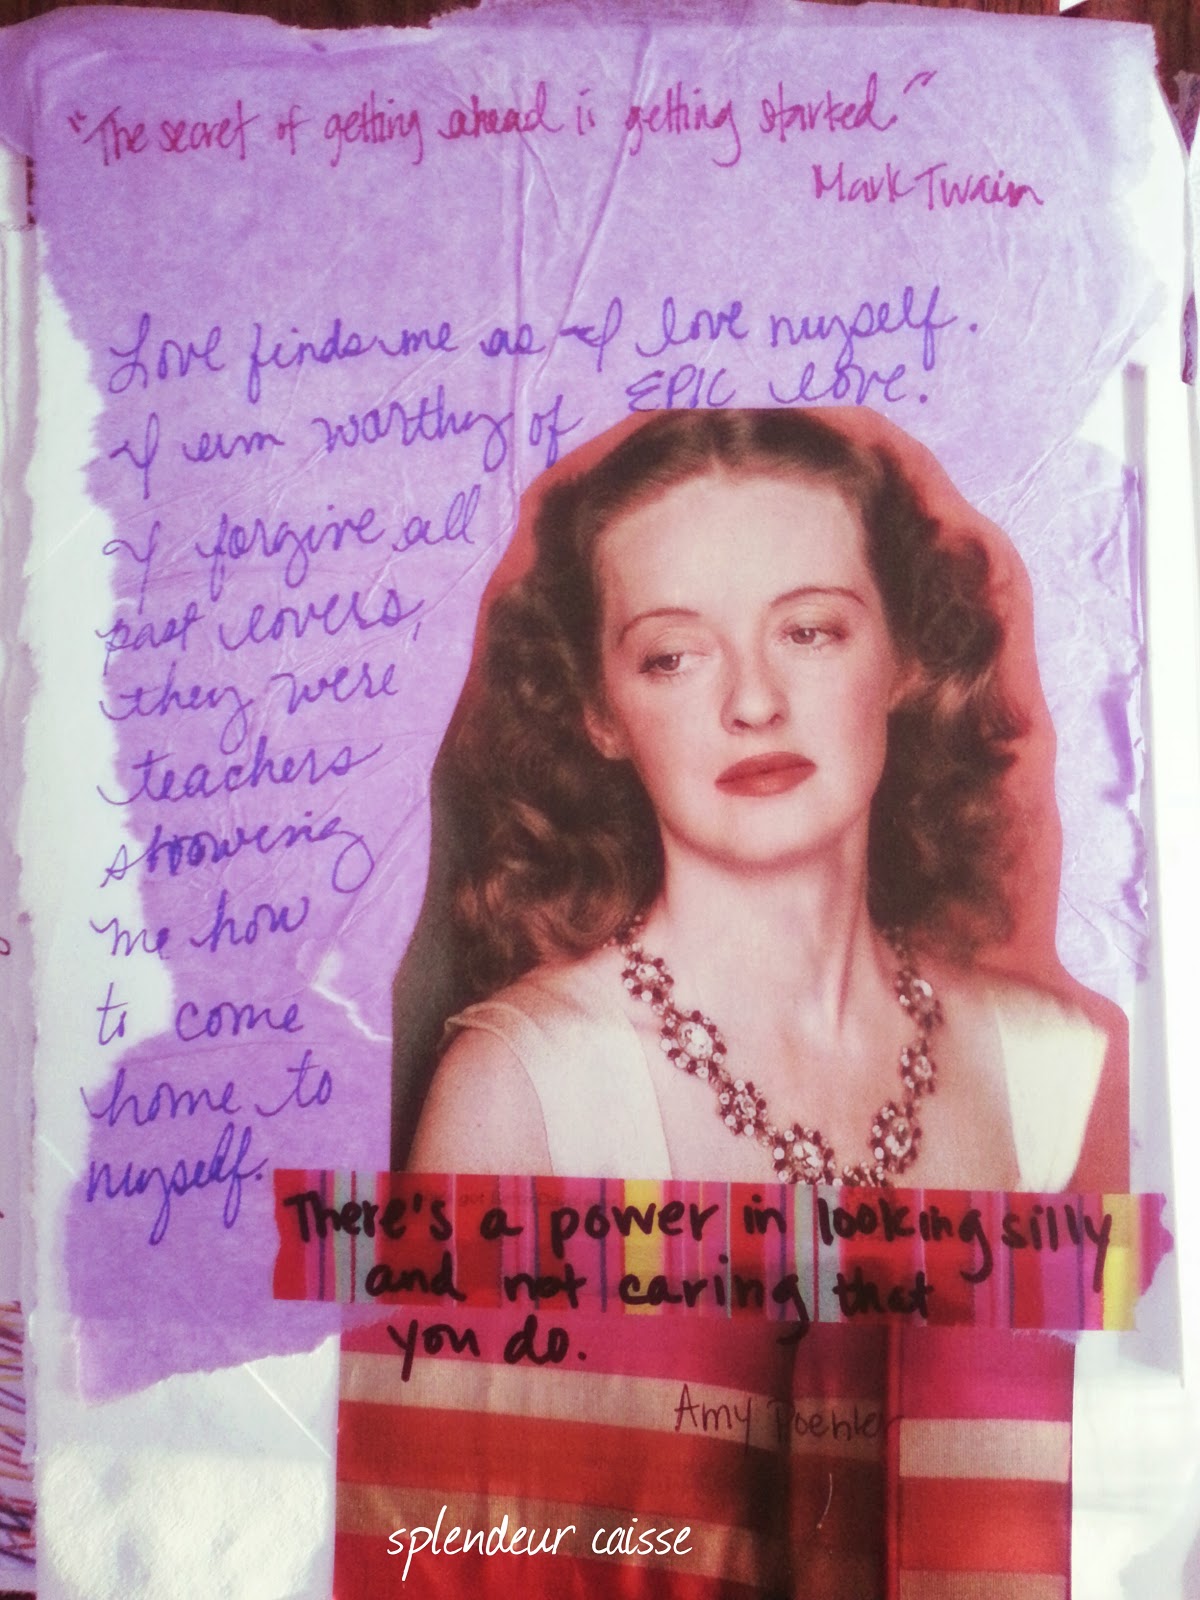 "The secret of getting ahead is getting started."
Mark Twain
Love finds me as I love myself.
I am worthy of EPIC love.
I forgive all
past lovers,
they were
teachers
showing
me how
to come
home to
myself.
There's a power in looking silly
and not caring that
you do.
Amy Poehler
splendeur caisse